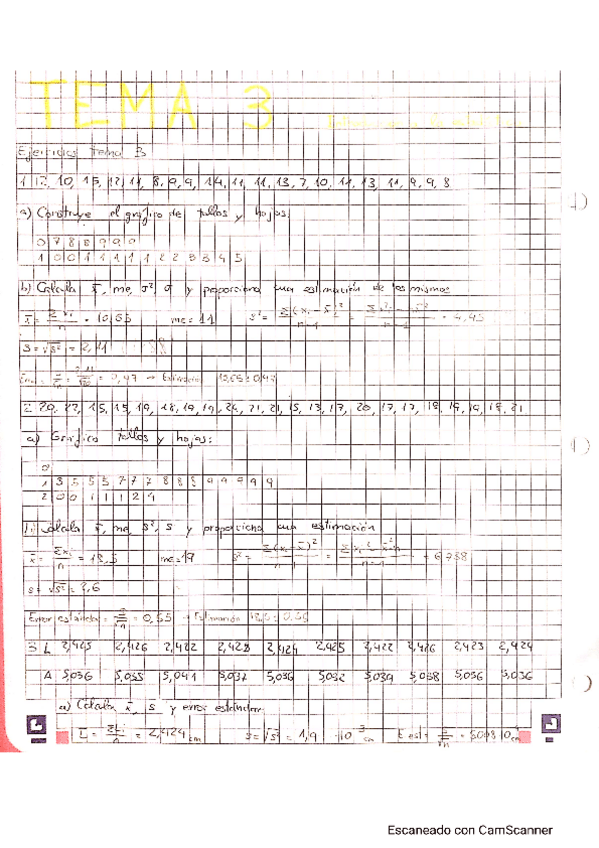 TEMA 3
Ejercicios tema 3
1 12, 10, 15, 12, 11, 8, 9, 9, 14, 11, 11, 13, 7, 10, 11, 13, 11, 9, 9, 8
a) Construye el gráfico de tallos y hojas:
0 7 8 8 9 9 9 9
1 0 0 1 1 1 1 1 2 2 3 3 4 5
b) Calcula x̄, me, σ², σ y proporciona una estimación de los mismos
x̄ = Σxi/n = 10,65 me = 11 s² = Σ(xi - x̄)²/n-1 = = 4,45
s = √s² = 2,11
= 0,47 → 10,65 ± 0,47
2 20, 22, 15, 15, 19, 18, 19, 19, 24, 21, 21, 15, 13, 17, 20, 17, 17, 18, 19, 19, 18, 21
a) Gráfico tallos y hojas:
0
1 3 5 5 5 7 7 7 8 8 8 9 9 9 9 9
2 0 0 1 1 1 2 4
b) Calcula x̄, me, s², s y proporciona una estimación
x̄ = Σxi/n = 18,5 me = 19 s² = Σ(xi - x̄)²/n-1 = = 6,738
s = √s² = 2,6
Error estándar = = 0,55 → Estimación
3 L 2,425 2,426 2,422 2,428 2,424 2,425 2,422 2,426 2,423 2,424
A 5,036 5,035 5,041 5,037 5,036 5,032 5,039 5,038 5,036 5,036
a) Calcula x̄, s y error estándar
L̄ = ΣLi/n = 2,424 cm s = √s² = 1,9 cm
Escaneado con CamScanner